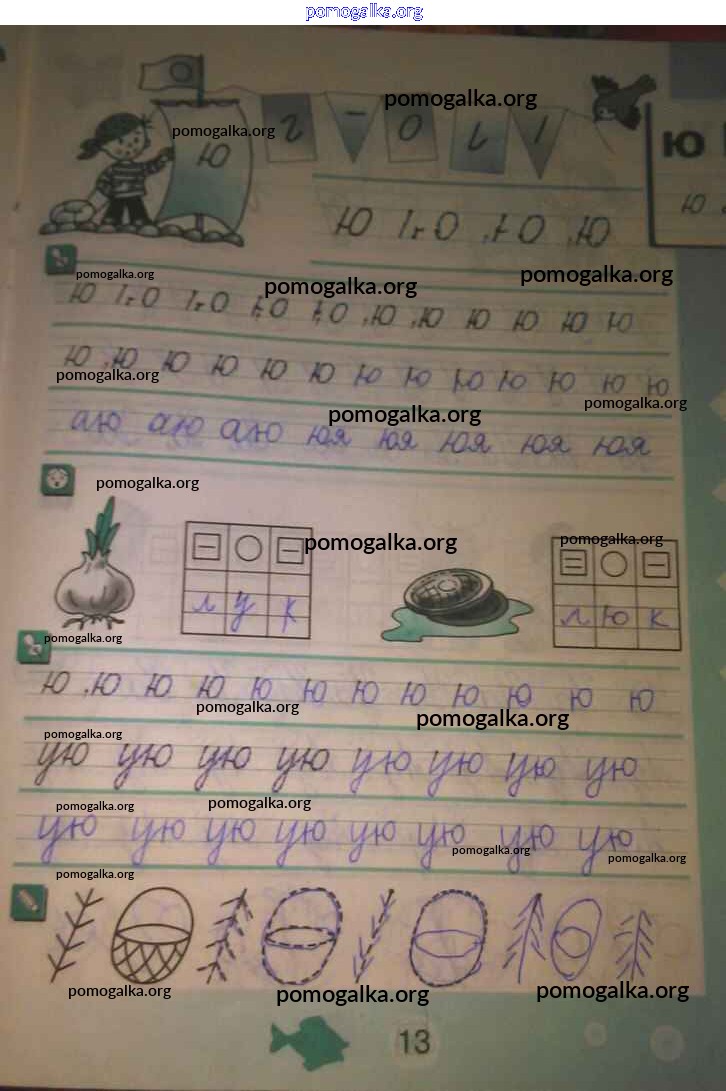 pomogalka.org
pomogalka.org
О
pomogalka.org
Ю О
Ю
Ю
Ю О Ю
pomogalka.org
pomogalka.org
pomogalka.org
ю ю ю ю ю ю
pomogalka.org
ю ю ю ю ю ю ю ю ю ю ю ю ю
pomogalka.org
pomogalka.org
аю аю аю юя юя юя юя юя
pomogalka.org
pomogalka.org
pomogalka.org
л у к
л ю к
pomogalka.org
ю ю ю ю ю ю ю ю ю ю ю ю
pomogalka.org
pomogalka.org
pomogalka.org
ую ую ую ую ую ую ую ую
pomogalka.org
pomogalka.org
ую ую ую ую ую ую ую ую
pomogalka.org
pomogalka.org
pomogalka.org
pomogalka.org
pomogalka.org
pomogalka.org
13